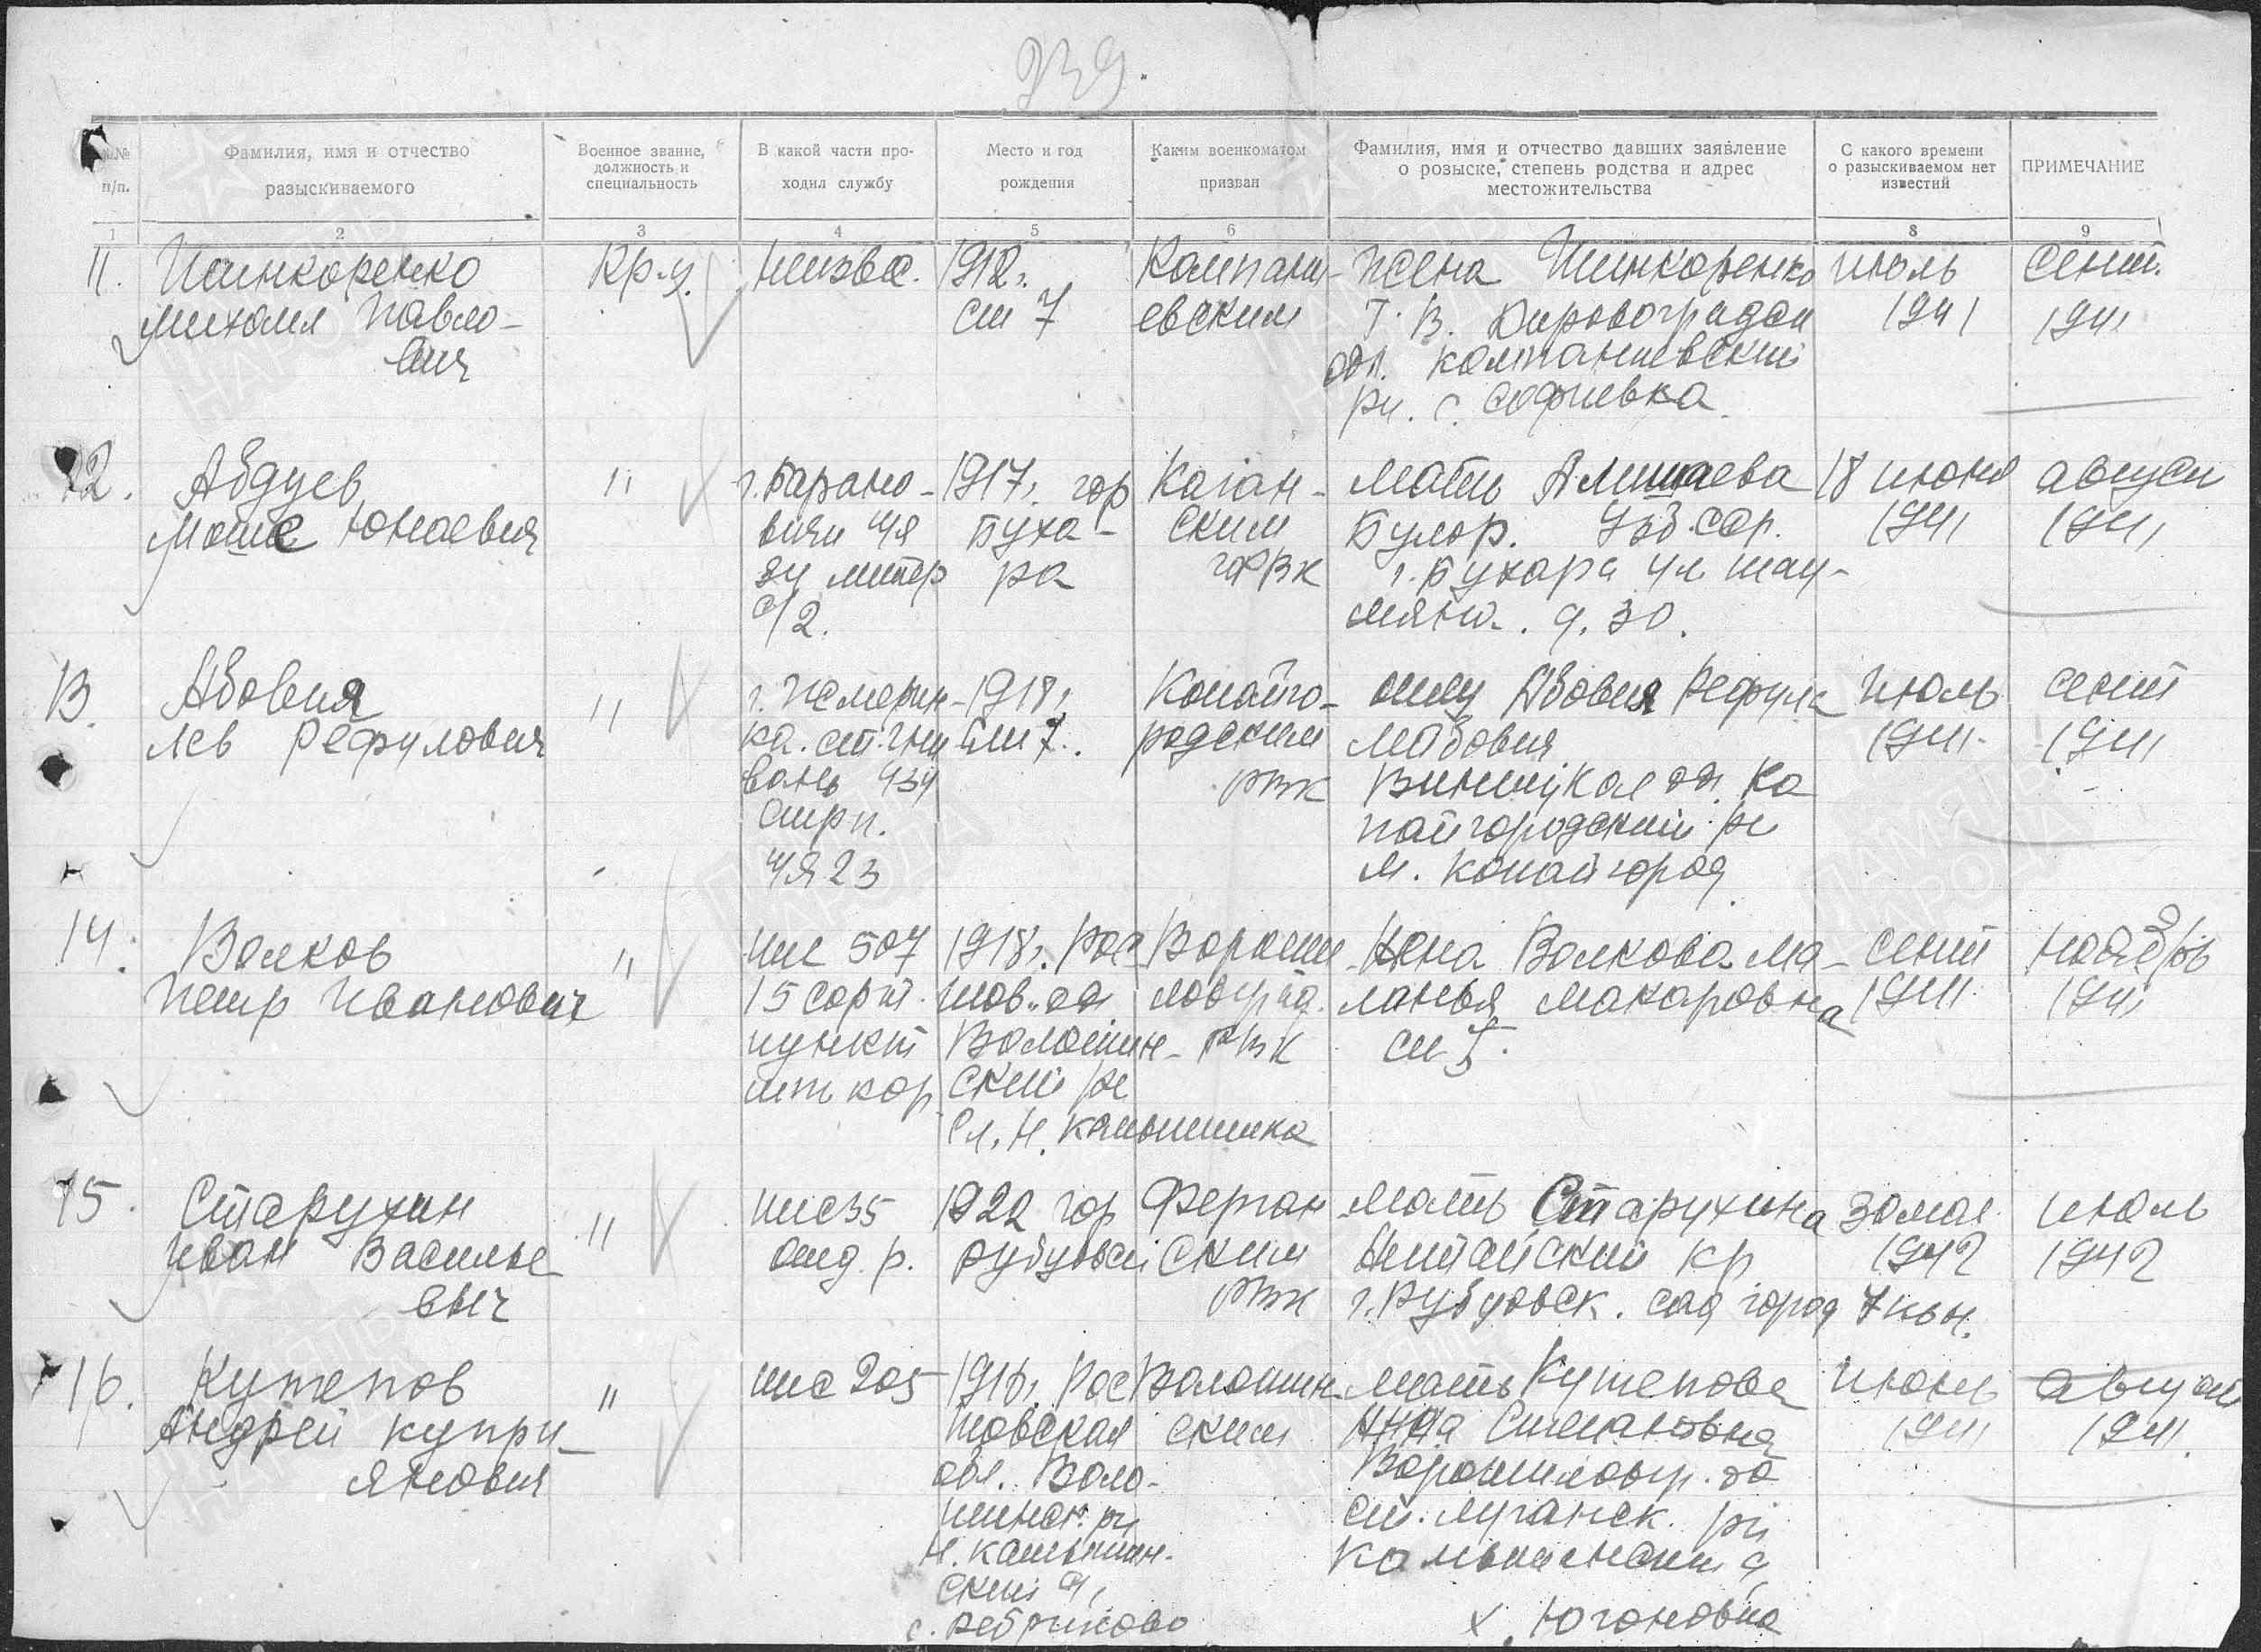 239.
№№ п/п.
Фамилия, имя и отчество
разыскиваемого
Военное звание,
должность и
специальность
В какой части про-
ходил службу
Место и год
рождения
Каким военкоматом
призван
Фамилия, имя и отчество давших заявление
о розыске, степень родства и адрес
местожительства
С какого времени
о разыскиваемом нет
известий
ПРИМЕЧАНИЕ
1 2 3 4 5 6 8 9
11.
Шинкоренко
михаил Павло-
вич
Кр-ц.
неизвес.
1912г.
см 7
Компани-
евским
жена Шинкоренко
Т. В. Кировоградск
обл. компаниевский
рн. с. Софиевка.
июль
1941
сент.
1941
12.
Абдуев
Моше Юнаевич
"
г. Барано-
вичи п/я
24 литер
с/2.
1917г. гор
Буха-
ра
Каган-
ским
горвк
мать Алишаева
Булор. Узб. сср.
г. Бухара ул шау-
мяна. д. 30.
18 июня
1941
август
1941
13.
Абович
Лев Рефулович
"
г. Жмерин-
ка. ст. Гни
вань 434
стрп.
п/я 23
1918г.
см 7.
Копайго-
родским
рвк
отец Абович Рефул
Мабович
Винницкая обл. Ко
пайгородский рн
м. Копайгород
июль
1941
сент
1941
14.
Волков
Петр Иванович
"
ппс 507
15 сорт.
пункт
1918г. Рос
тов. обл
Волошин-
ский рн
сл. Н. Камышинка
Вороши
ловград.
рвк
жена Волкова Ма-
ланья макаровна
см 5.
сент
1941
ноябрь
1941
15.
Старухин
Иван Василье
вич
"
ппс 35
отд. р.
1922 гор
Рубцовск
Ферган
ским
рвк
мать Старухина
Алтайский кр
г. Рубцовск. сад город 7 кв н.
30 мая
1942
июль
1942
16.
Кутепов
Андрей Купри-
янович
"
ппс 205
1916г. Рос
товская
обл. Воло-
шинск. рн
Н. Камышин-
ский с/с
с. Ребриково
Волошин-
ским
мать Кутепова
Анна Степановна
Ворошиловгр. об
ст. Луганск. рн
х. Югановка
июнь
1941
август
1941.